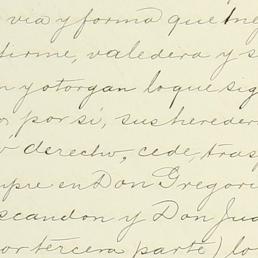 via y forma que
firme, valedera y s
n y otorgan lo que sig
por si, sus hereder
derecho, cede, tras
mpre en Don Gregori
scandon y Don Jua
por tercera parte) lo